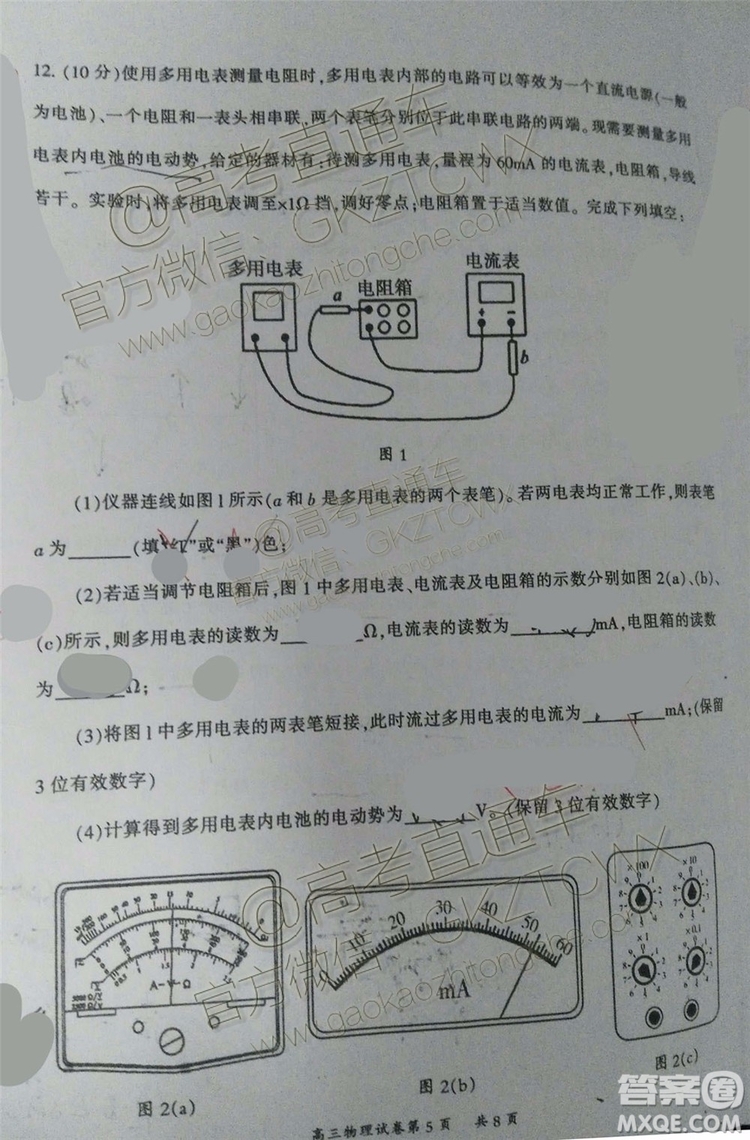 12. (10 分)使用多用电表测量电阻时,多用电表内部的电路可以等效为一个直流电源(一般
为电池)、一个电阻和一表头相串联,两个表笔分别位于此串联电路的两端。现需要测量多用
电表内电池的电动势,给定的器材有:待测多用电表,量程为60mA的电流表,电阻箱,导线
若干。实验时,将多用电表调至×1Ω挡,调好零点;电阻箱置于适当数值。完成下列填空:
多用电表
电阻箱
电流表
a
b
+ −
图1
(1)仪器连线如图1所示(a和b是多用电表的两个表笔)。若两电表均正常工作,则表笔
a为______(填“红”或“黑”)色;
(2)若适当调节电阻箱后,图1中多用电表、电流表及电阻箱的示数分别如图2(a)、(b)、
(c)所示,则多用电表的读数为______Ω,电流表的读数为______mA,电阻箱的读数
为______Ω;
(3)将图1中多用电表的两表笔短接,此时流过多用电表的电流为______mA;(保留
3位有效数字)
(4)计算得到多用电表内电池的电动势为______V。(保留3位有效数字)
A-V-Ω
0 10 20 30 40 50 60
mA
×100 ×10
×1 ×0.1
图2(a)
图2(b)
图2(c)
高三物理试卷第5页 共8页
@高考直通车
官方微信:GKZTCWX
www.gaokaozhitongche.com
@高考直通车
官方微信:GKZTCWX
@高考直通车
官方微信:GKZTCWX
答案圈
MXQE.COM